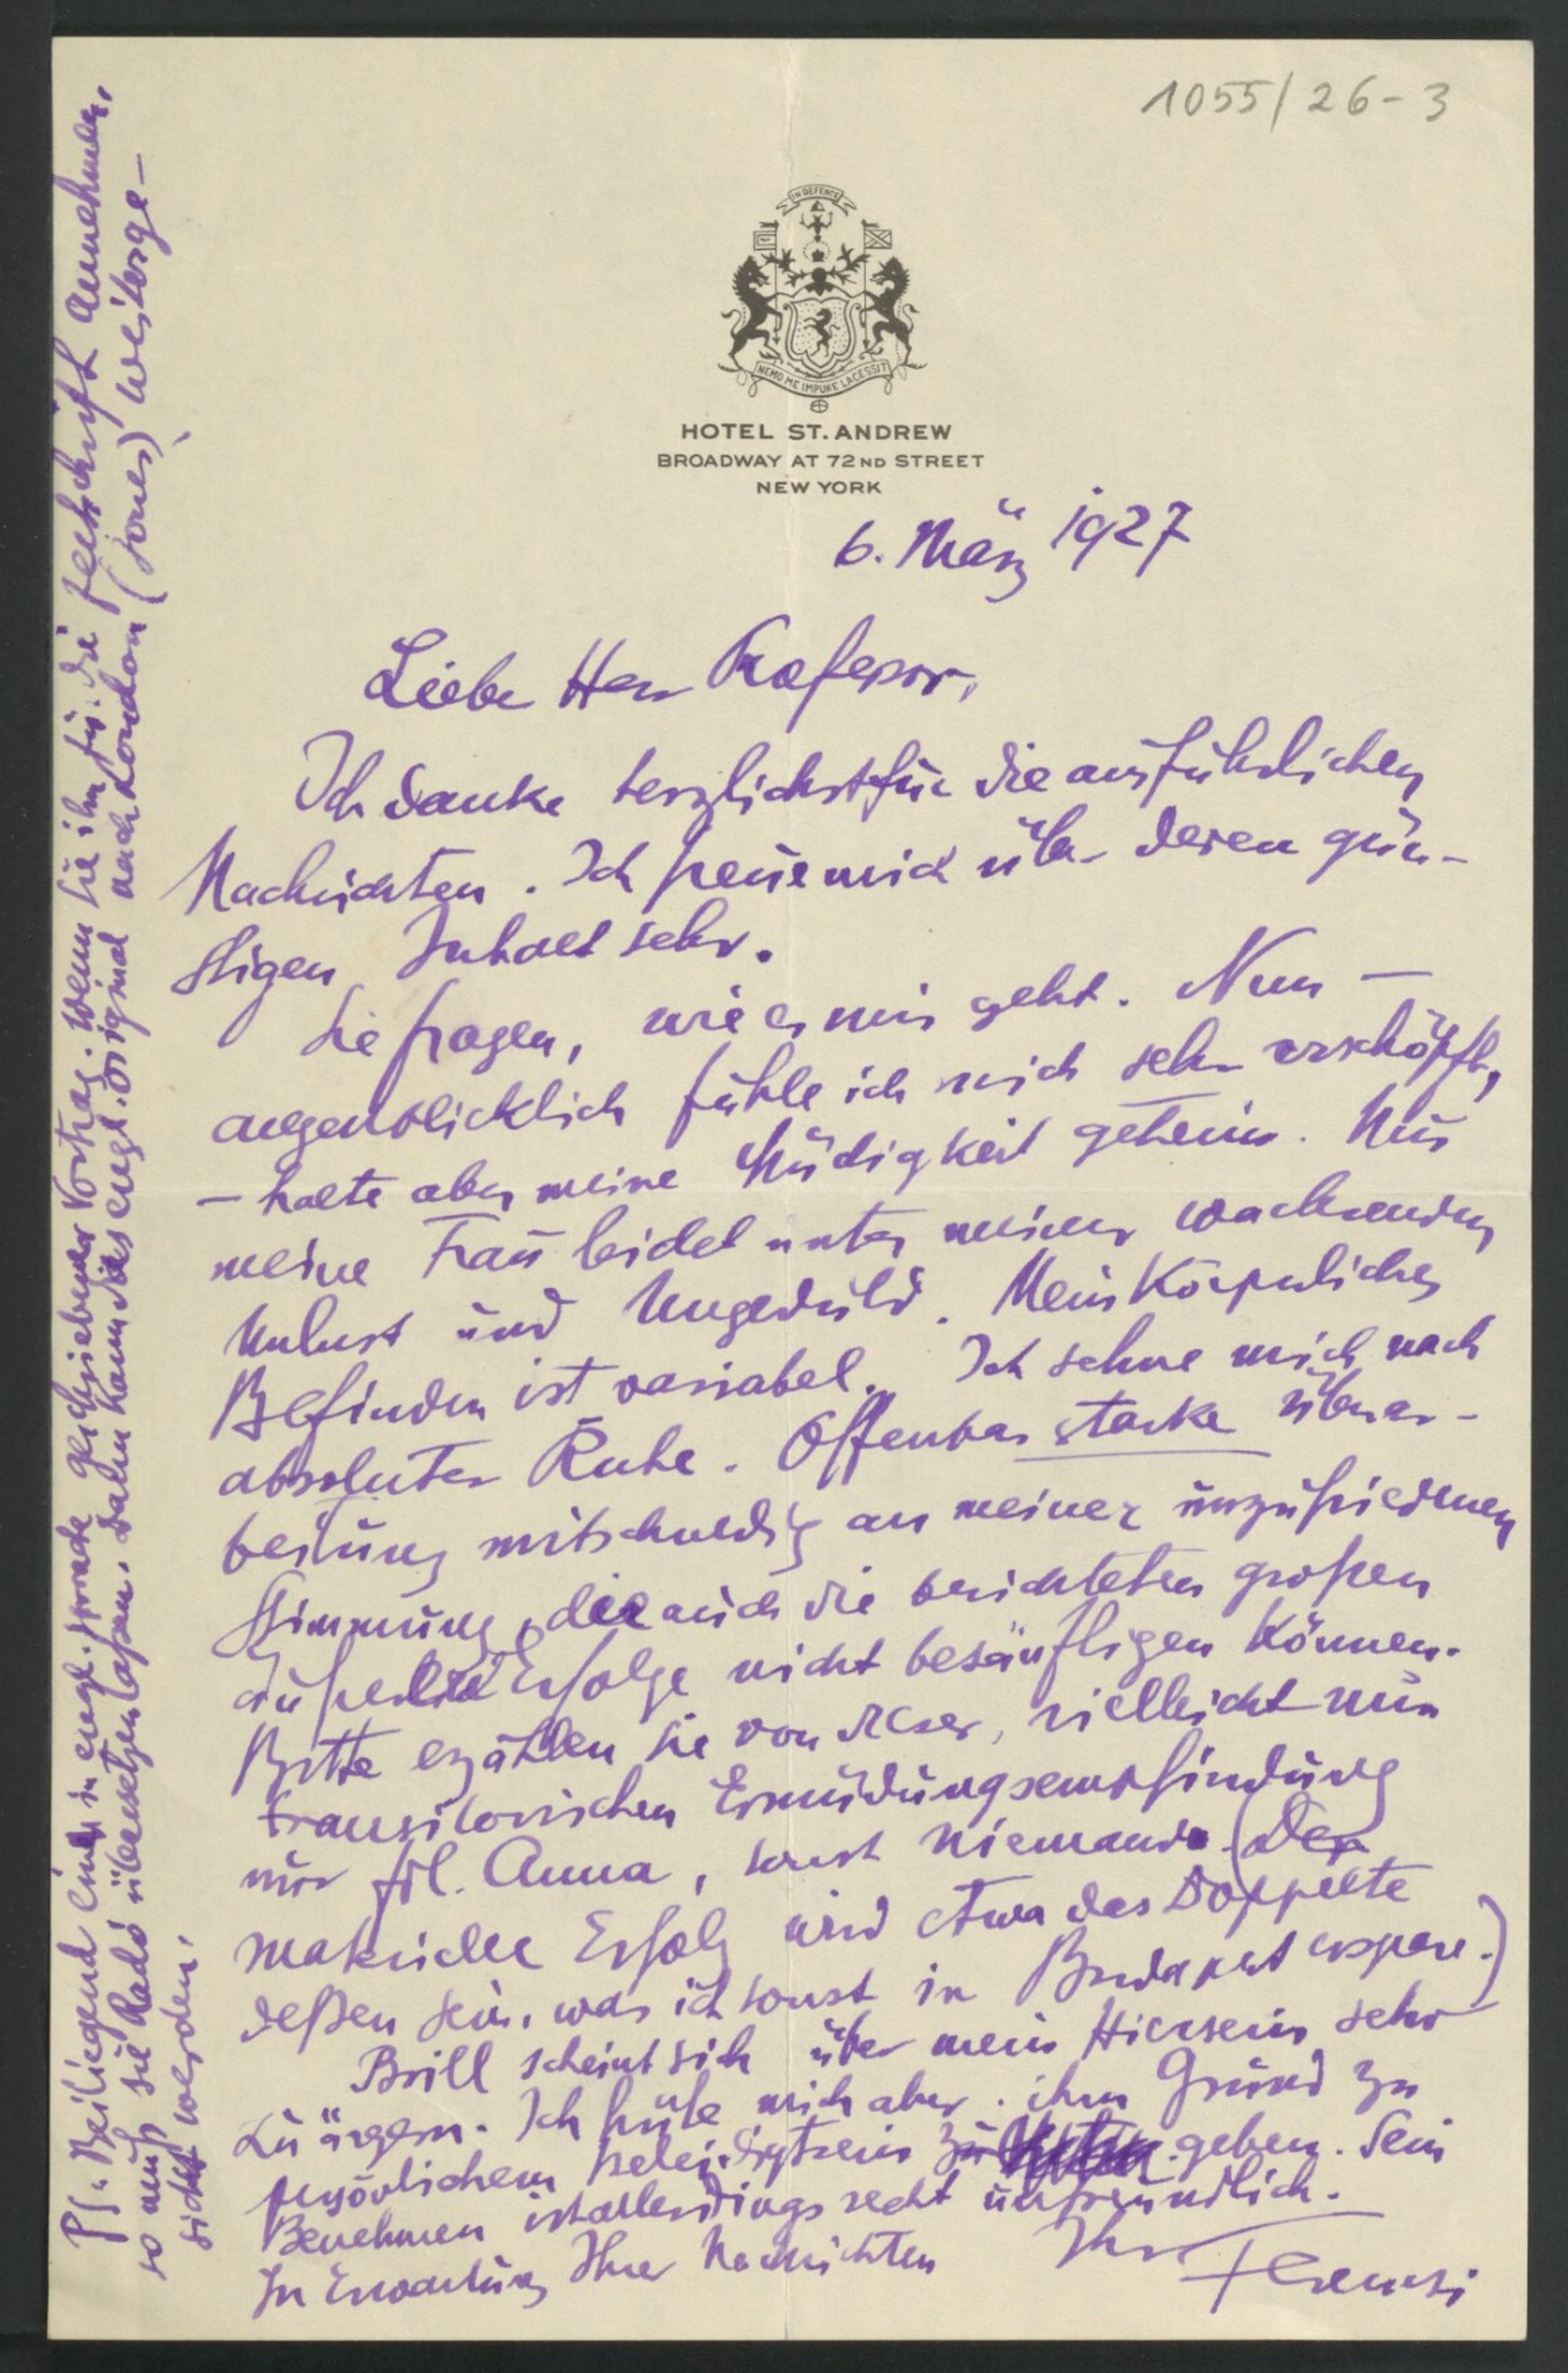 1055/26-3
IN DEFENCE
NEMO ME IMPUNE LACESSIT
HOTEL ST. ANDREW
BROADWAY AT 72ND STREET
NEW YORK
6. März 1927
Lieber Herr Professor,
Ich danke herzlichst für die ausführlichen
Nachrichten. Ich freue mich über deren gün-
stigen Inhalt sehr.
Sie fragen, wie es mir geht. Nun –
augenblicklich fühle ich mich sehr erschöpft,
– halte aber meine Müdigkeit geheim. Nur
meine Frau leidet unter meiner wachsenden
Unlust und Ungeduld. Mein Körperliches
Befinden ist variabel. Ich sehne mich nach
absoluter Ruhe. Offenbar starke Überar-
beitung mitschuldig an meiner unzufriedenen
Stimmung, die auch die berichteten großen
äußerlich Erfolge nicht besänftigen können.
Bitte erzählen Sie von dieser, vielleicht nur
transitorischen Ermüdungsempfindung
nur Frl. Anna, sonst niemandem. (Der
materielle Erfolg wird etwa das Doppelte
dessen sein, was ich sonst in Budapest erspare.)
Brill scheint sich über mein Hiersein sehr
zu ärgern. Ich hüte mich aber, ihm Grund zu
persönlichem Beleidigtsein zu geben. Sein
Benehmen ist allerdings recht unfreundlich.
In Erwartung Ihrer Nachrichten
Ihr Ferenczi
PS. Beiliegend ein in engl. Sprache geschriebener Vortrag. Wenn Sie ihn für die Zeitschrift annehmen,
so muß sie Radó übersetzen laßen. Dann kann das engl. Original nach London (Jones) weiterge-
sickt werden.